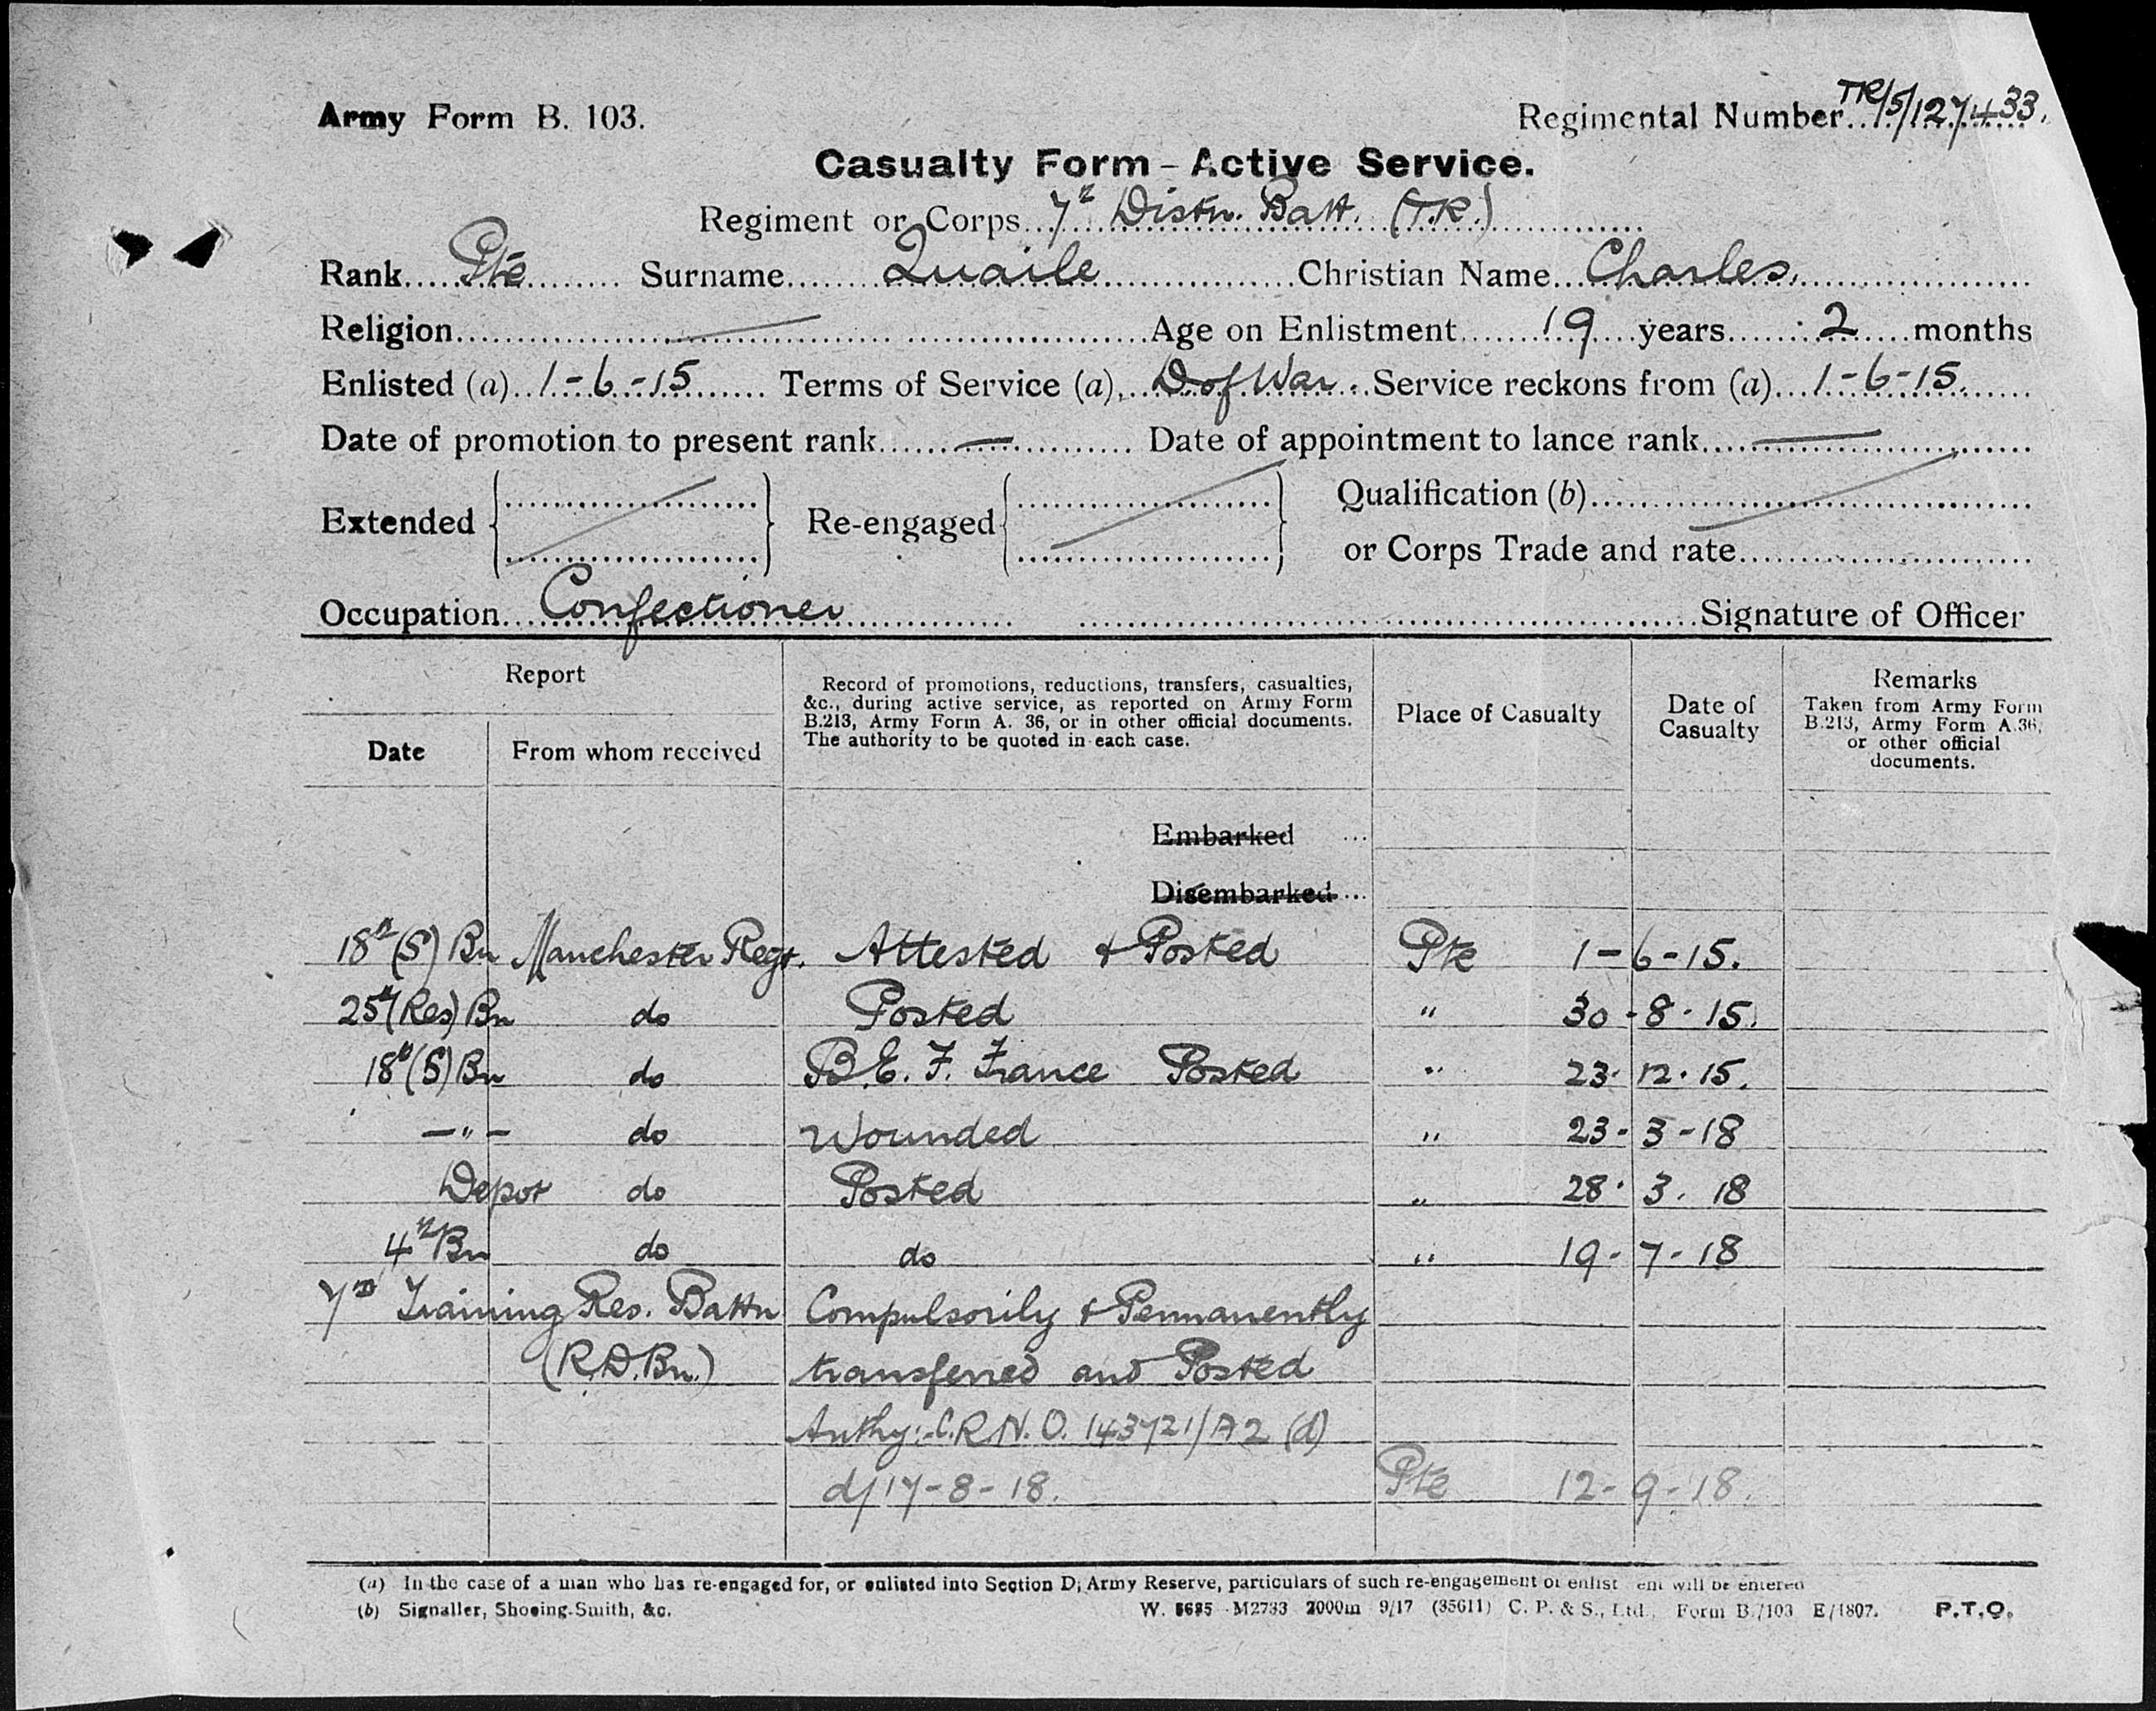 Army Form B. 103.
Regimental Number TR/5/127433.
Casualty Form - Active Service.
Regiment or Corps 7th Distn. Batt. (T.R.)
Rank Pte Surname Quaile Christian Name Charles.
Religion — Age on Enlistment 19 years 2 months
Enlisted (a) 1-6-15 Terms of Service (a) D of War. Service reckons from (a) 1-6-15.
Date of promotion to present rank — Date of appointment to lance rank —
Extended Re-engaged Qualification (b)
or Corps Trade and rate
Occupation Confectioner Signature of Officer
Report
Date
From whom received
Record of promotions, reductions, transfers, casualties,
&c., during active service, as reported on Army Form
B.213, Army Form A. 36, or in other official documents.
The authority to be quoted in each case.
Place of Casualty
Date of
Casualty
Remarks
Taken from Army Form
B.213, Army Form A.36,
or other official
documents.
Embarked ...
Disembarked ...
18th (S) Bn Manchester Regt. Attested & Posted Pte 1-6-15.
25th (Res) Bn do Posted " 30-8-15.
18th (S) Bn do B.E.F. France Posted " 23.12.15.
—"— do Wounded " 23-3-18
Depot do Posted " 28.3.18
4th Bn do do " 19-7-18
7th Training Res. Battn Compulsorily & Permanently
(R.D.Bn.) transferred and Posted
Authy:- C.R.N.O. 143721/A2 (d)
d/17-8-18. Pte 12-9-18.
(a) In the case of a man who has re-engaged for, or enlisted into Section D, Army Reserve, particulars of such re-engagement or enlist ent will be entered
(b) Signaller, Shoeing-Smith, &c.
W. 5685 M2733 2000m 9/17 (35611) C. P. & S., Ltd., Form B./103 E/1807. P.T.O.